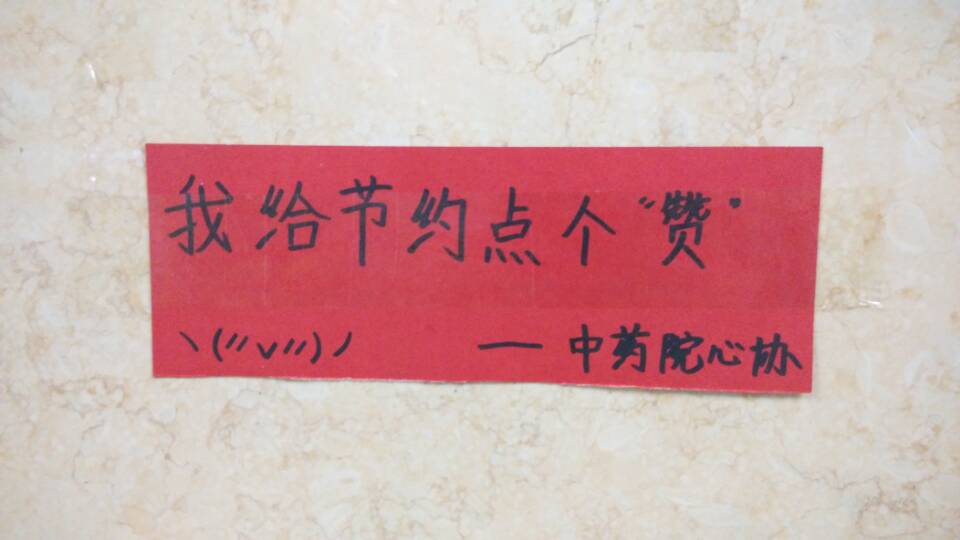 我给节约点个“赞”
丶(〃∨〃)ノ — 中药院心协